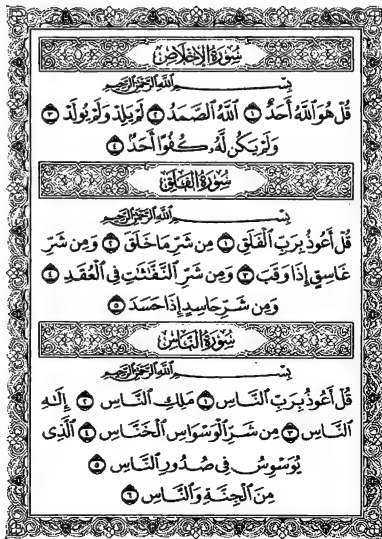 سُورَةُ الإِخْلَاصِ
بِسْمِ اللَّهِ الرَّحْمَٰنِ الرَّحِيمِ
قُلْ هُوَ اللَّهُ أَحَدٌ ١ اللَّهُ الصَّمَدُ ٢ لَمْ يَلِدْ وَلَمْ يُولَدْ ٣
وَلَمْ يَكُن لَّهُۥ كُفُوًا أَحَدٌ ٤
سُورَةُ الفَلَقِ
بِسْمِ اللَّهِ الرَّحْمَٰنِ الرَّحِيمِ
قُلْ أَعُوذُ بِرَبِّ الْفَلَقِ ١ مِن شَرِّ مَا خَلَقَ ٢ وَمِن شَرِّ
غَاسِقٍ إِذَا وَقَبَ ٣ وَمِن شَرِّ النَّفَّاثَاتِ فِي الْعُقَدِ ٤
وَمِن شَرِّ حَاسِدٍ إِذَا حَسَدَ ٥
سُورَةُ النَّاسِ
بِسْمِ اللَّهِ الرَّحْمَٰنِ الرَّحِيمِ
قُلْ أَعُوذُ بِرَبِّ النَّاسِ ١ مَلِكِ النَّاسِ ٢ إِلَٰهِ
النَّاسِ ٣ مِن شَرِّ الْوَسْوَاسِ الْخَنَّاسِ ٤ الَّذِي
يُوَسْوِسُ فِي صُدُورِ النَّاسِ ٥
مِنَ الْجِنَّةِ وَالنَّاسِ ٦